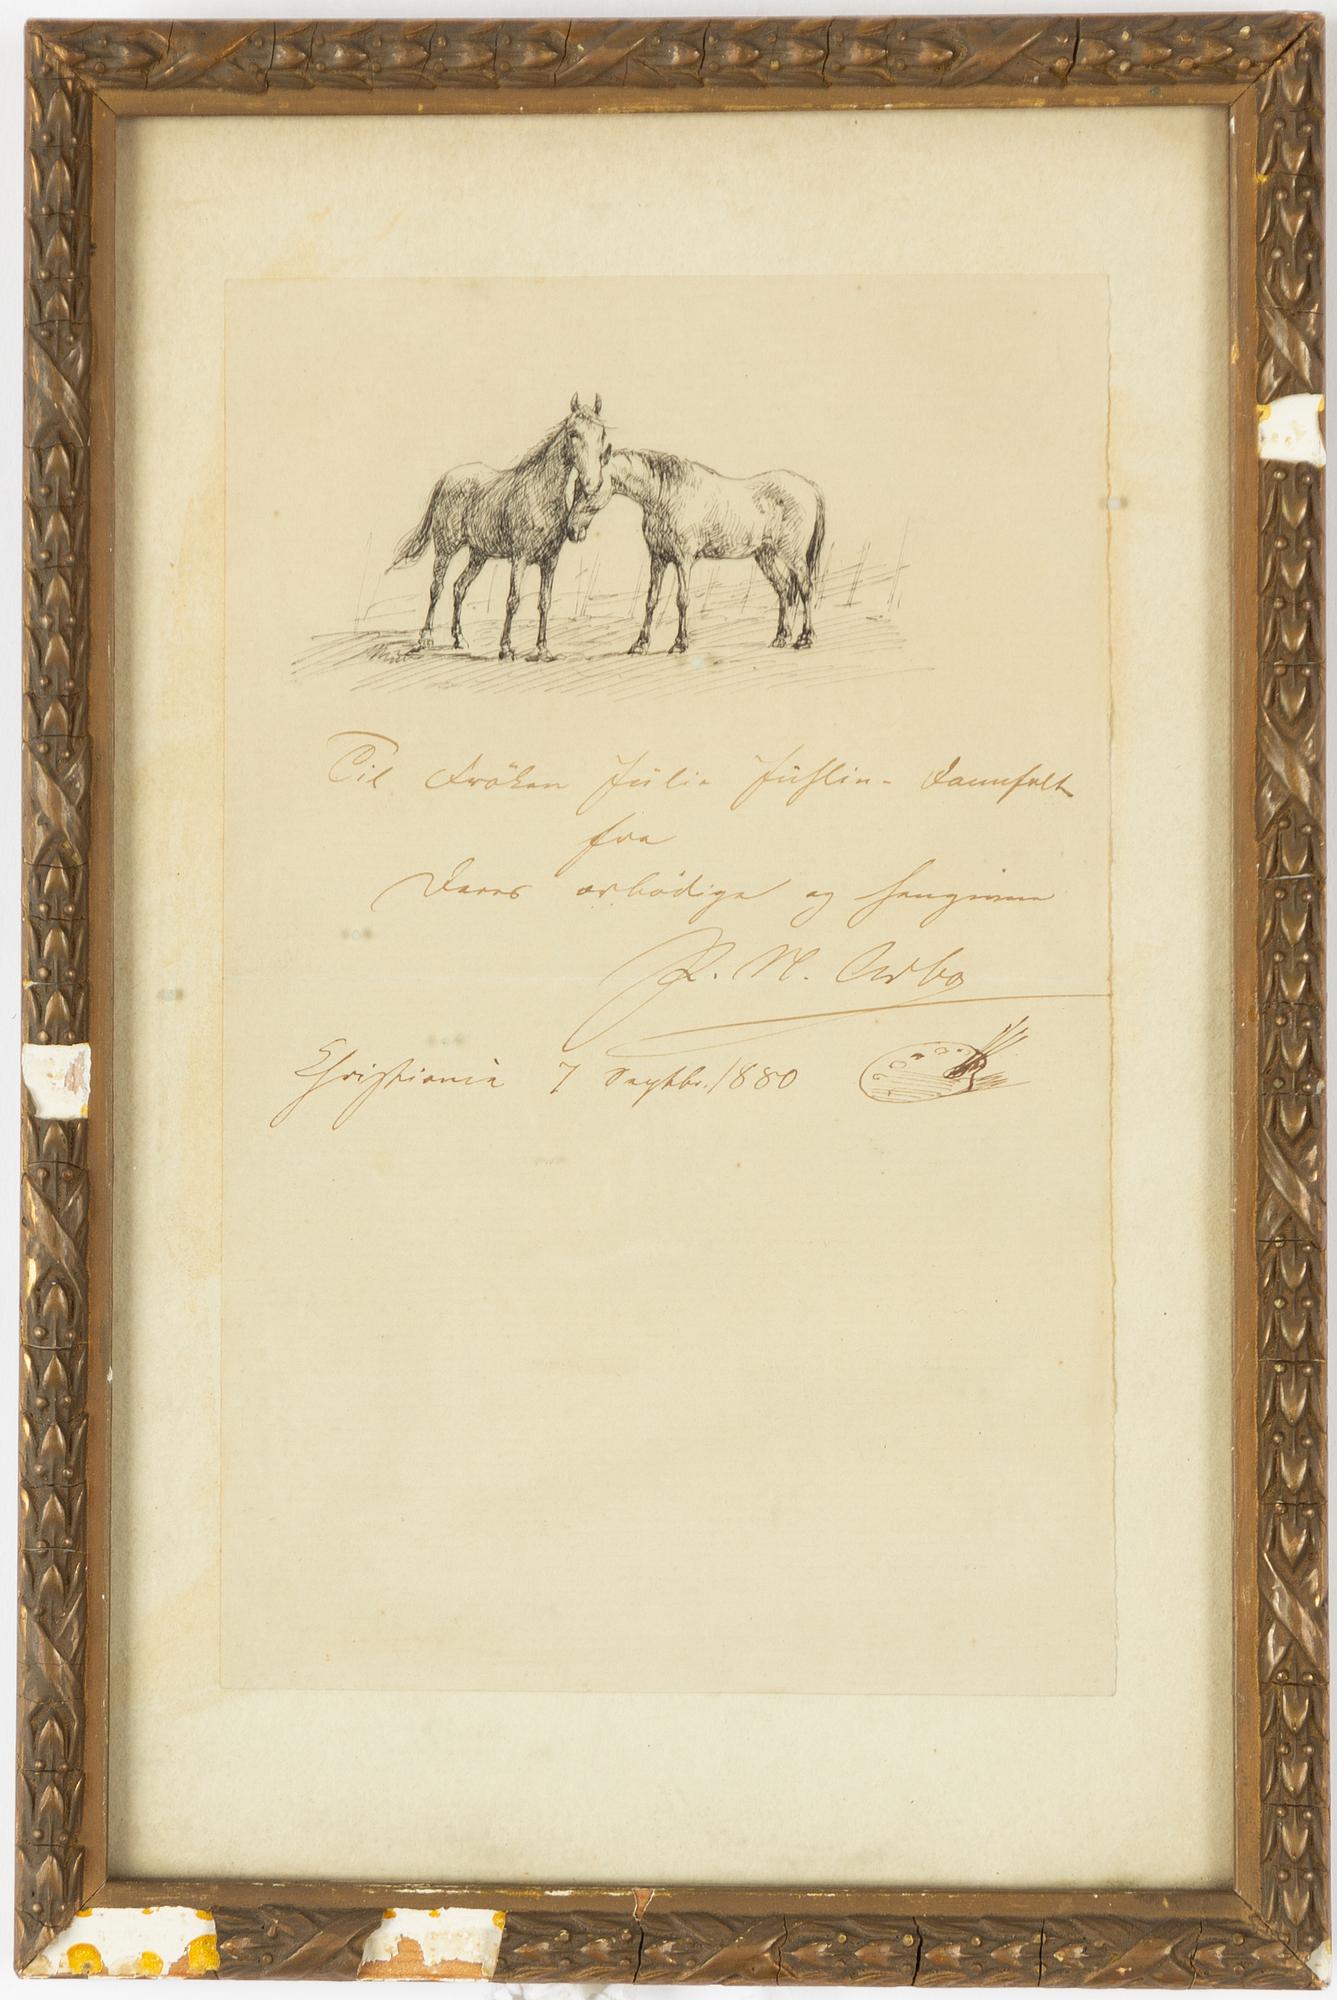 Til Fröken Julie Juhlin-Dannfelt
fra
Deres ærbödige og hengivne
P. N. Arbo
Christiania 7 Septbr. 1880